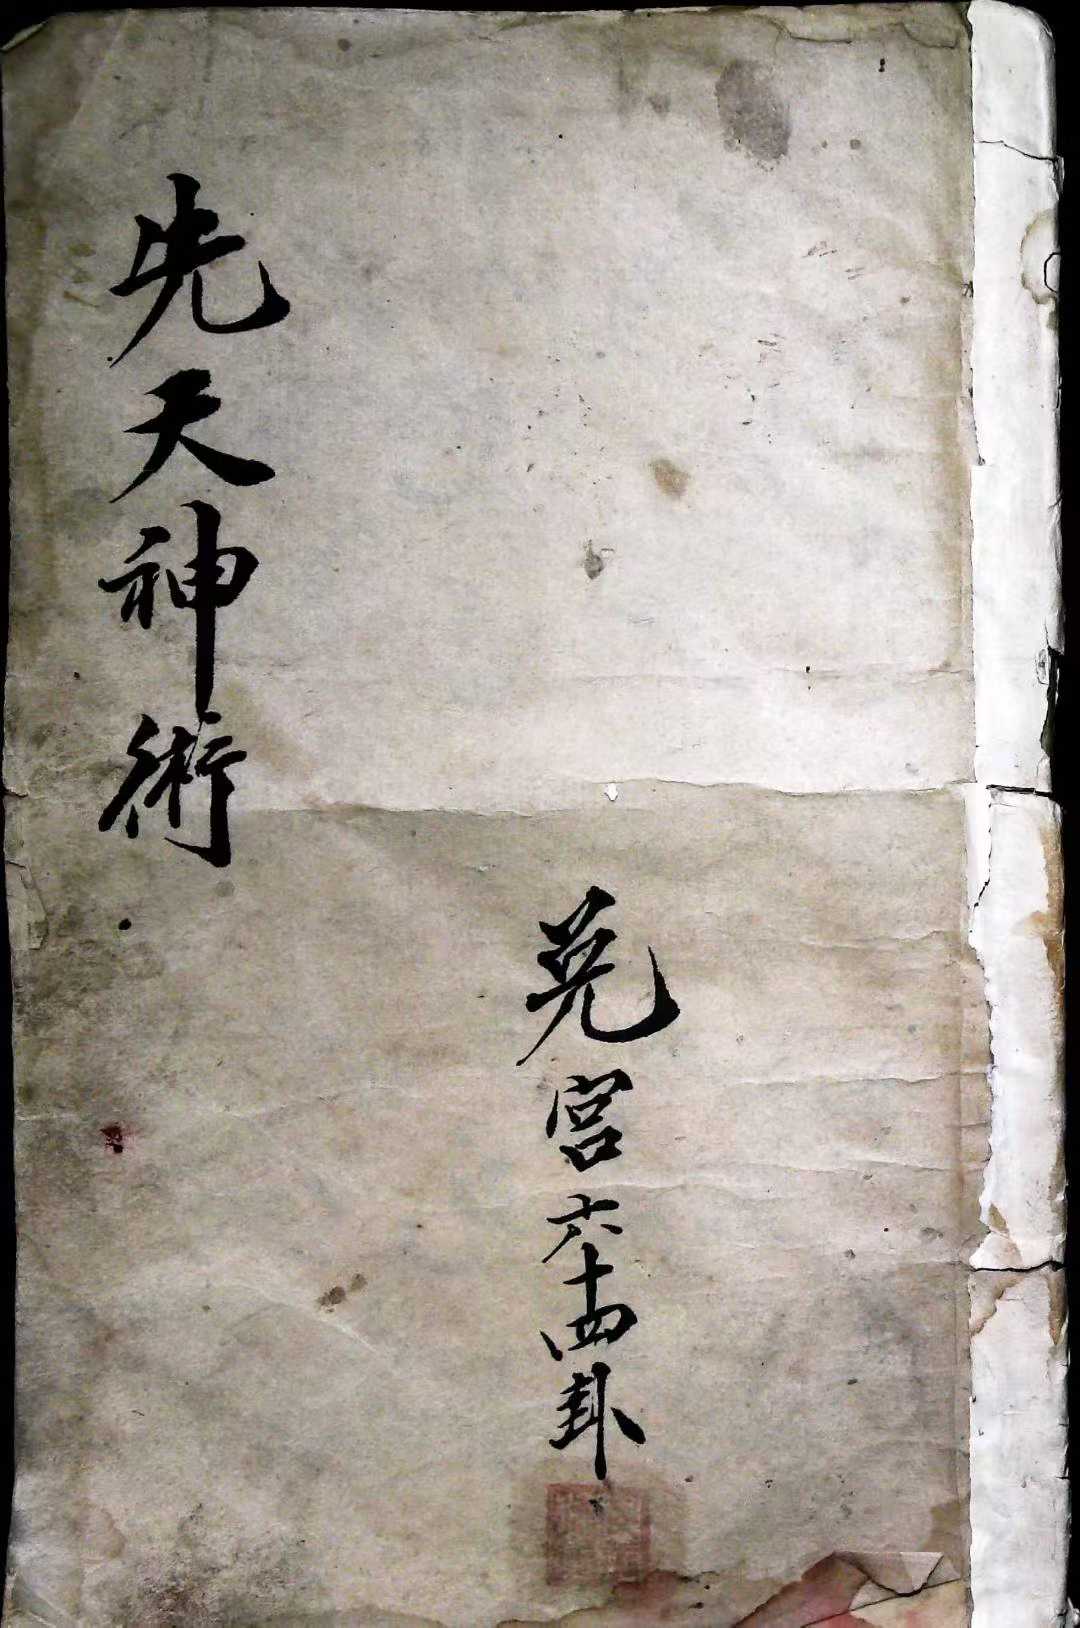 先天神術
兌宮六十四卦